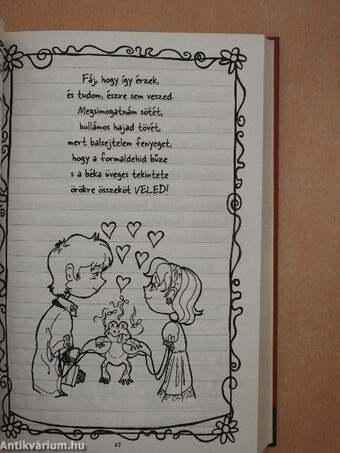 Fáj, hogy így érzek,
és tudom, észre sem veszed.
Megsimogatnám sötét,
hullámos hajad tövét,
mert balsejtelem fenyeget,
hogy a formaldehid bűze
s a béka üveges tekintete
örökre összeköt VELED!
27
Antikvárium.hu